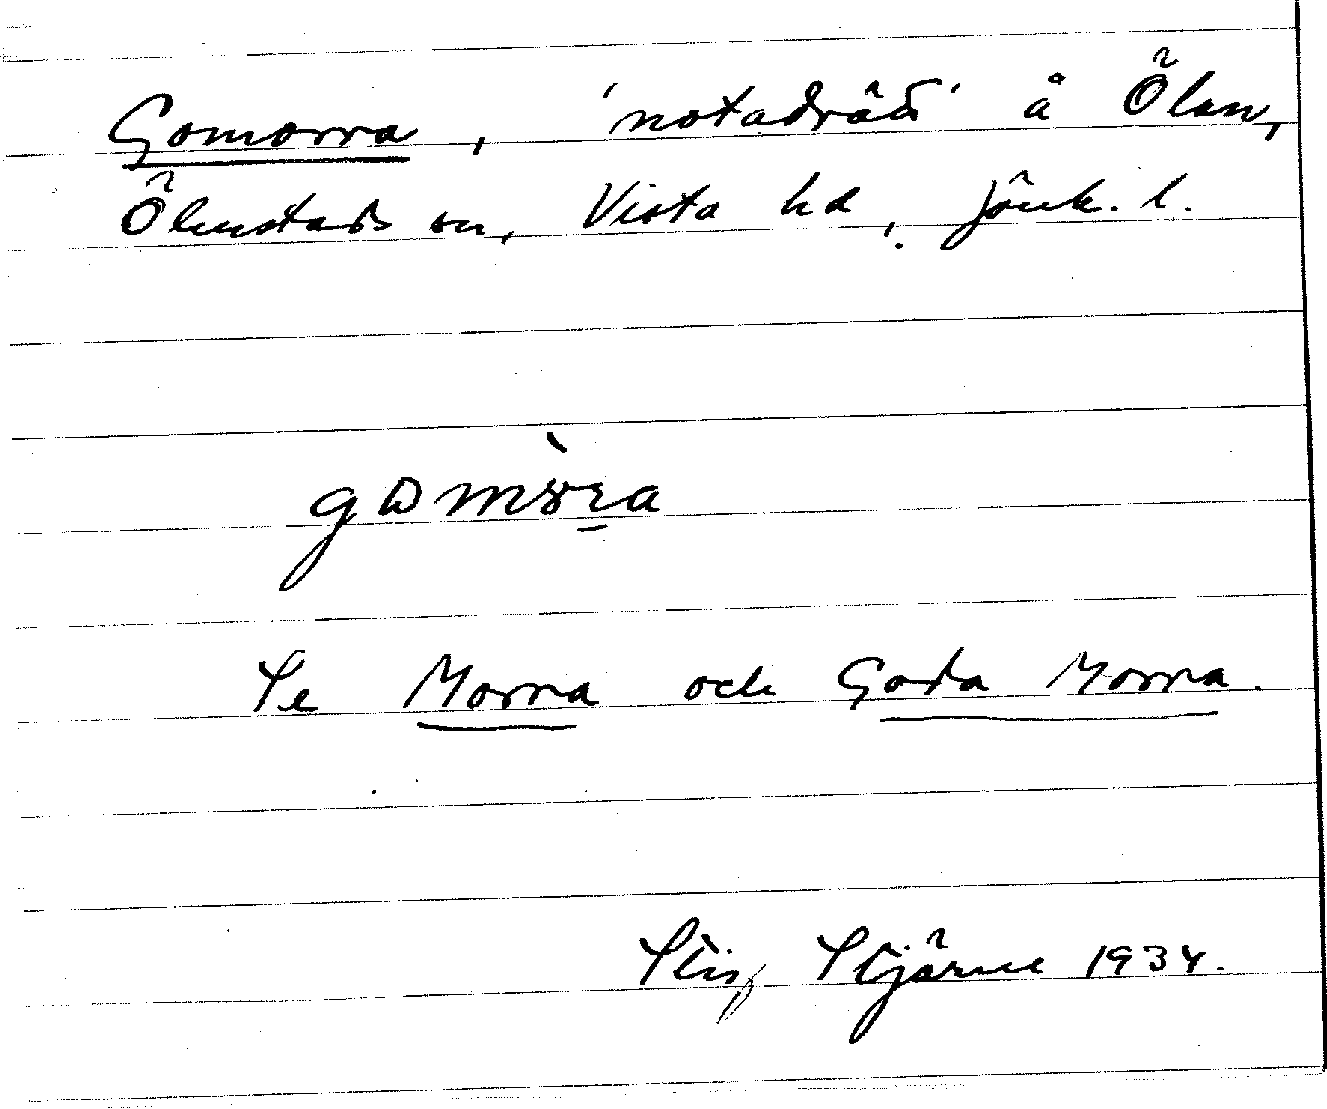 Gomorra, 'notadräð' å Ölan,
Ölmstads sn, Vista hd, Jönk. l.
gɷmòra
Se Morra och Goda Morra.
Stig Stjärne 1934.